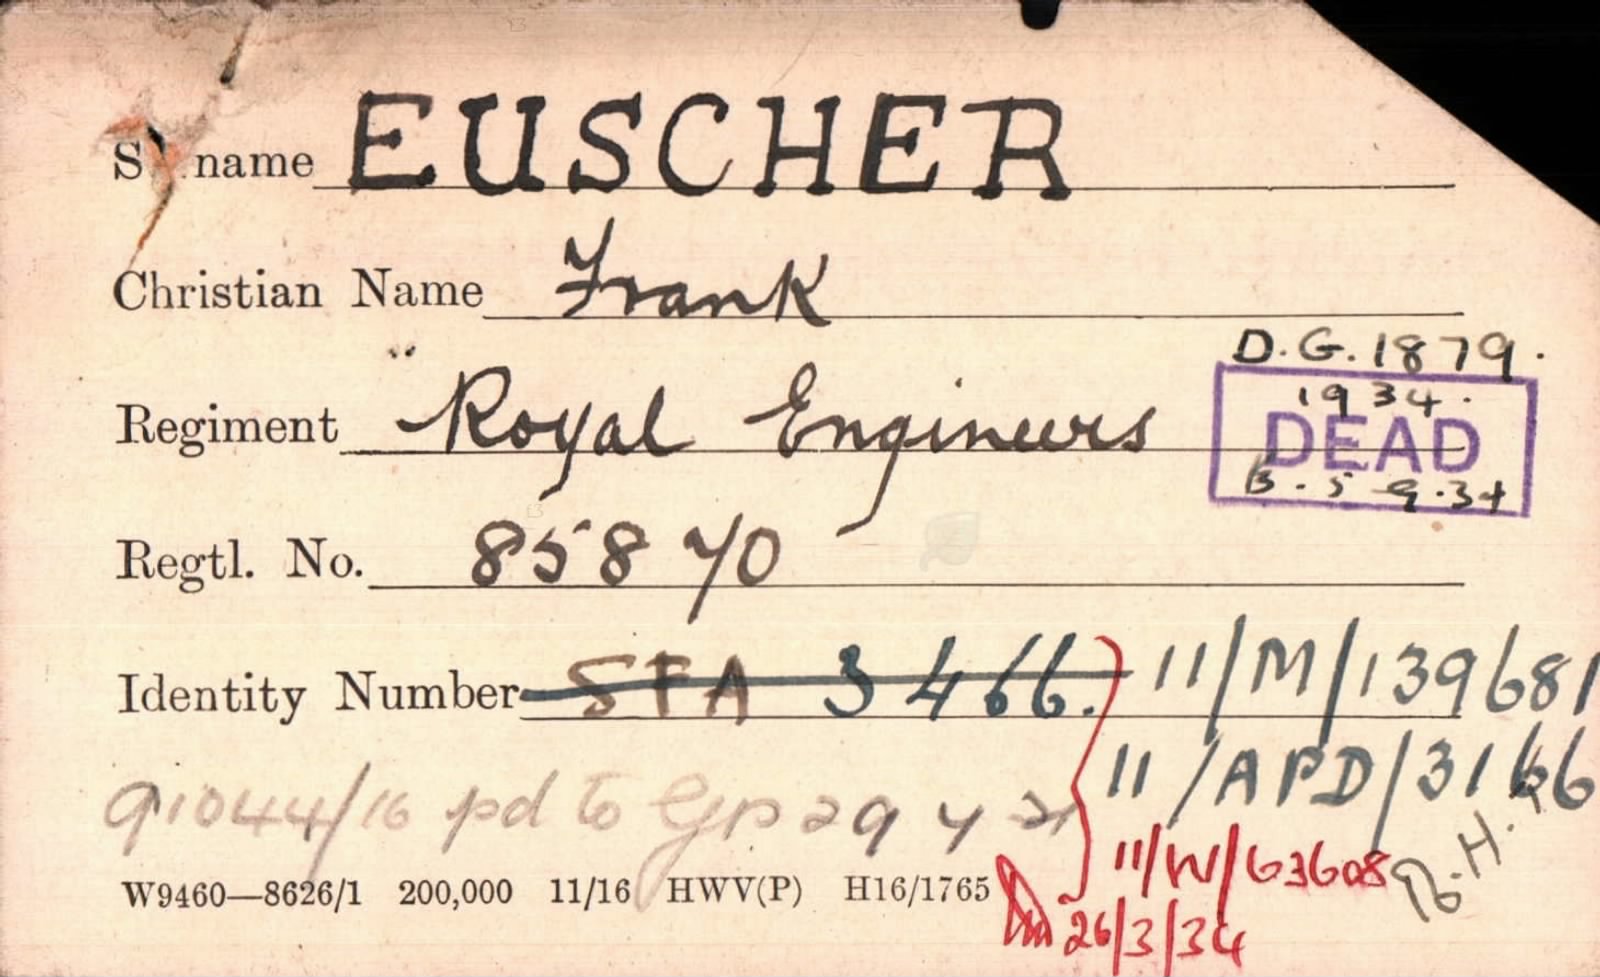 S name EUSCHER
Christian Name Frank
Regiment Royal Engineers
D.G. 1879.
1934.
DEAD
5 9.34
Regtl. No. 85870
Identity Number SFA 3466. 11/M/139681
11/APD/3166
91044/16 pd to Gp 29 4 21
11/W/63608
W9460—8626/1 200,000 11/16 HWV(P) H16/1765
26/3/34